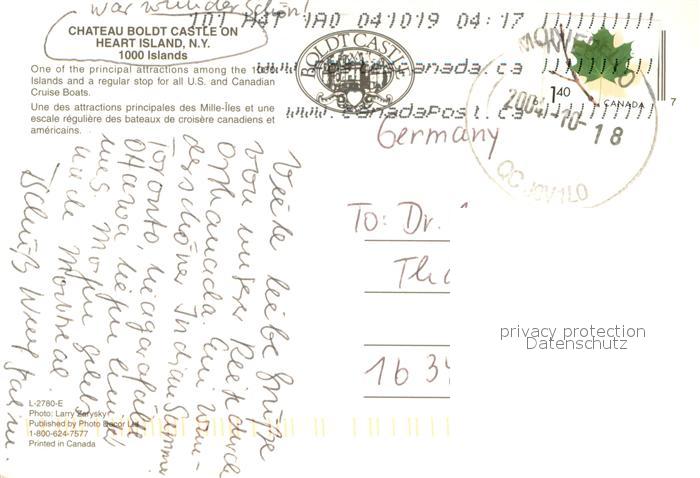 war wunderschön!
CHATEAU BOLDT CASTLE ON
HEART ISLAND, N.Y.
1000 Islands
One of the principal attractions among the 1000
Islands and a regular stop for all U.S. and Canadian
Cruise Boats.
Une des attractions principales des Mille-Îles et une
escale régulière des bateaux de croisère canadiens et
américains.
1A0 041019 04:17
BOLDT CASTLE
www. canada.ca
www.canadapost.ca
1.40
CANADA
7
2004-10-18
QC J0V1L0
Germany
To: Dr.
1634
privacy protection
Datenschutz
Viele liebe Grüße
von unserer Reise durch
Ostkanada. Ein wun-
derschöner Indian Summer
Toronto, Niagarafälle
Ottawa liegen hinter
uns. Morgen geht's
nach Montreal.
L-2780-E
Photo: Larry Zarysky
Published by Photo Decor Ltd.
1-800-624-7577
Printed in Canada